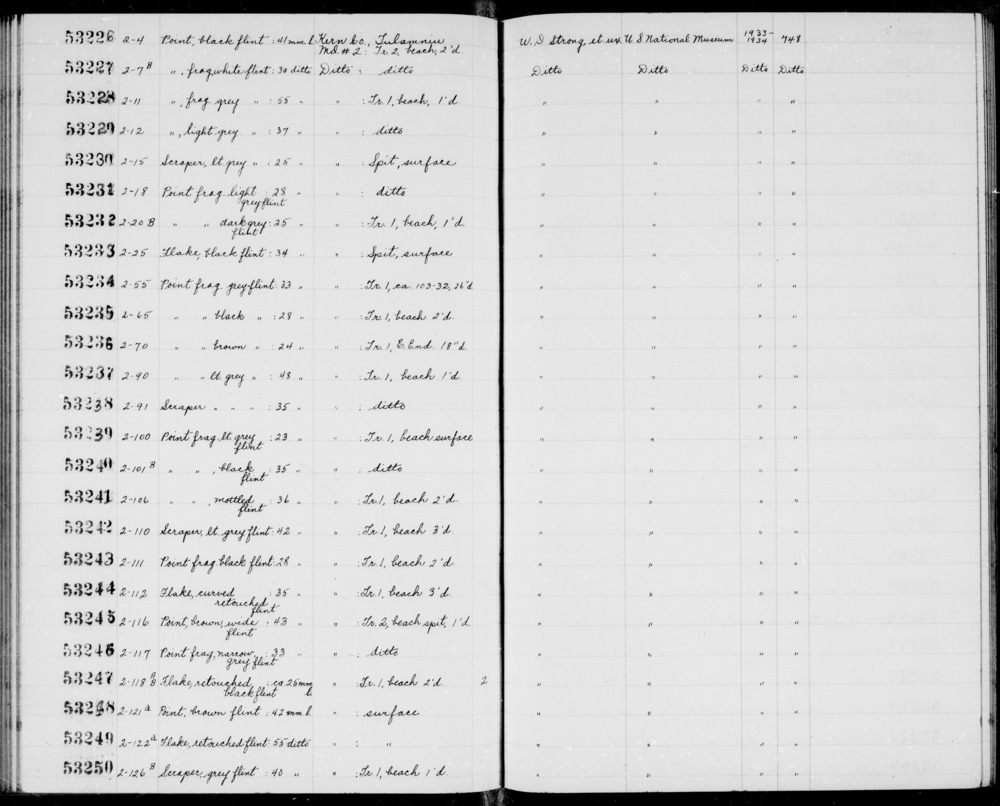 53226 2-4 Point, black flint : 41 mm l Kern Co., Tulamniu W. D Strong, et ux. U S National Museum 1933-1934 748
Md. # 2 : Tr. 2, beach, 2'd
53227 2-7B ", frag, white flint : 30 ditto Ditto : ditto Ditto Ditto Ditto Ditto
53228 2-11 ", frag grey " : 55 " " : Tr. 1, beach, 1'd " " " "
53229 2-12 ", light grey " : 37 " " : ditto " " " "
53230 2-15 Scraper, lt grey " : 25 " " : Spit, surface " " " "
53231 2-18 Point frag light : 28 " " : ditto " " " "
grey flint
53232 2-20 B " " dark grey : 25 " " : Tr. 1, beach, 1'd " " " "
flint
53233 2-25 Flake, black flint : 34 " " : Spit, surface " " " "
53234 2-55 Point frag grey flint : 33 " " : Tr. 1, ca. 103-32, 26"d " " " "
53235 2-65 " " black " : 28 " " : Tr. 1, beach 2'd. " " " "
53236 2-70 " " brown " : 24 " " : Tr. 1, E. End. 18"d. " " " "
53237 2-90 " " lt. grey " : 48 " " : Tr. 1, beach 1'd. " " " "
53238 2-91 Scraper " " " : 35 " " : ditto " " " "
53239 2-100 Point frag lt. grey : 23 " " : Tr. 1, beach surface " " " "
flint
53240 2-101B " " , black : 35 " " : ditto " " " "
flint
53241 2-106 " " , mottled : 36 " " : Tr. 1, beach 2'd. " " " "
flint
53242 2-110 Scraper, lt. grey flint : 42 " " : Tr. 1, beach 3'd. " " " "
53243 2-111 Point frag black flint : 28 " " : Tr. 1, beach 2'd. " " " "
53244 2-112 Flake, curved : 35 " " : Tr. 1, beach 3'd. " " " "
retouched flint
53245 2-116 Point, brown, wide : 43 " " : Tr. 2, beach spit, 1'd " " " "
flint
53246 2-117 Point frag, narrow, : 33 " " : ditto " " " "
grey flint
53247 2-118 A B Flake, retouched : ca 25 mm " : Tr. 1, beach 2'd. 2 " " " "
black flint l
53248 2-121a Point, brown flint : 42 mm l " : surface " " " "
53249 2-122a Flake, retouched flint : 55 ditto " : " " " " "
53250 2-126B Scraper, grey flint : 40 " " : Tr. 1, beach 1'd. " " " "